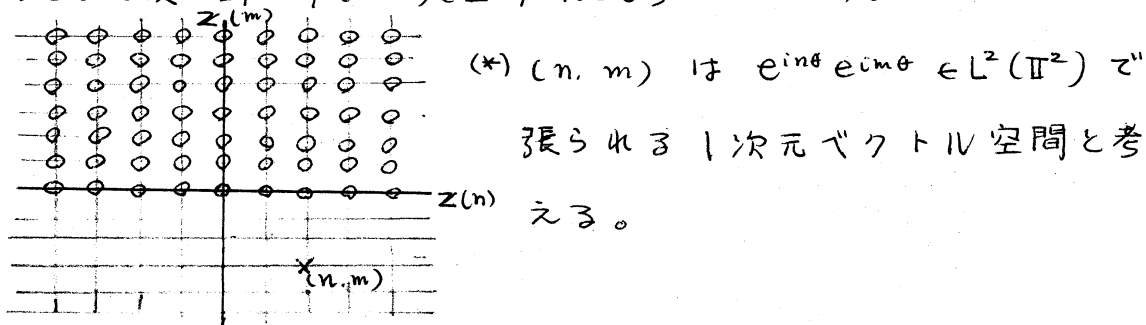 Z(m)
(*) (n, m) は e^{inθ} e^{imθ} ∈ L²(𝕋²) で
張られる 1次元ベクトル空間と考
Z(n)
える。
(n, m)